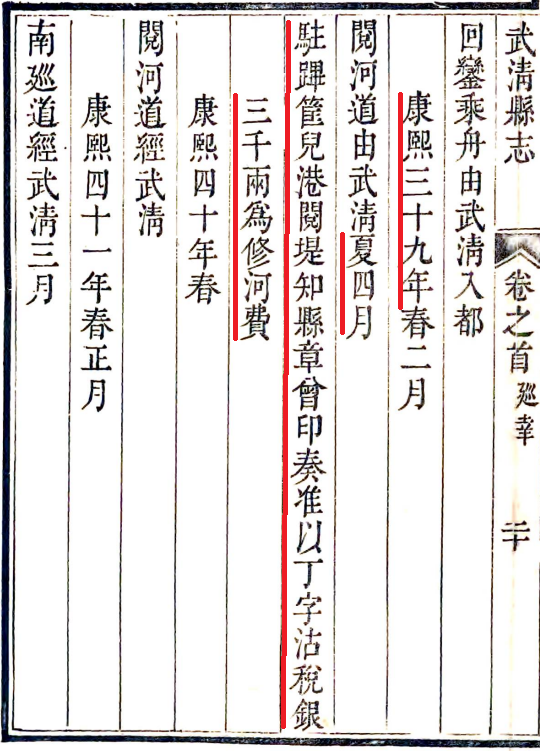 武清縣志
卷之首
廵幸
二十
回鑾乘舟由武淸入都
康熙三十九年春二月
閱河道由武淸夏四月
駐蹕筐兒港閱堤知縣章曾印奏准以丁字沽稅銀
三千兩為修河費
康熙四十年春
閱河道經武淸
康熙四十一年春正月
南廵道經武淸三月